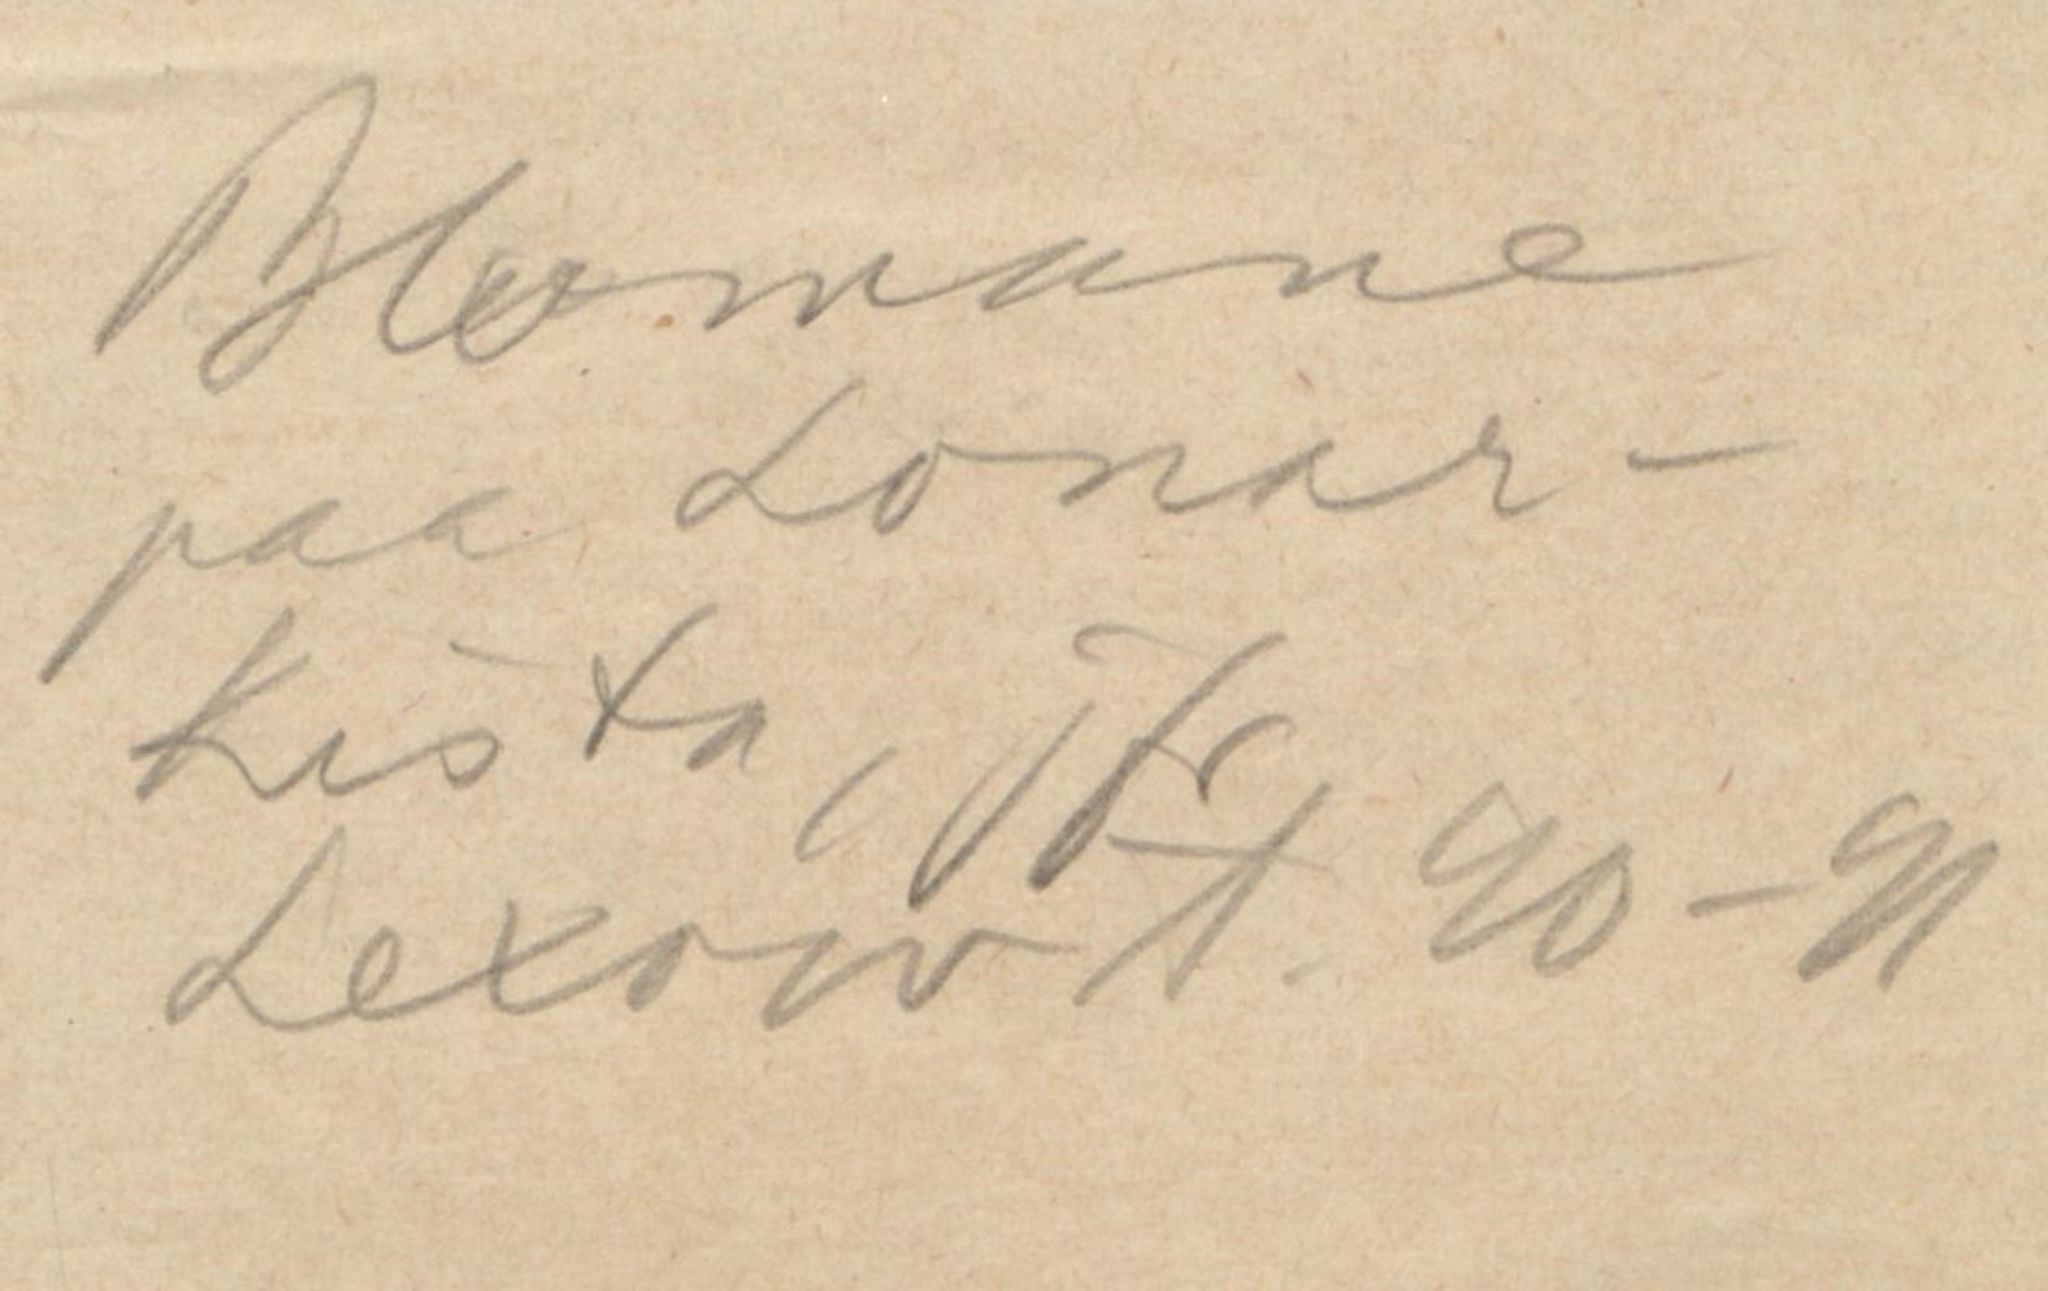 Blomane
paa Lonar-
Kista, Jfr
Lexow A. 90-91